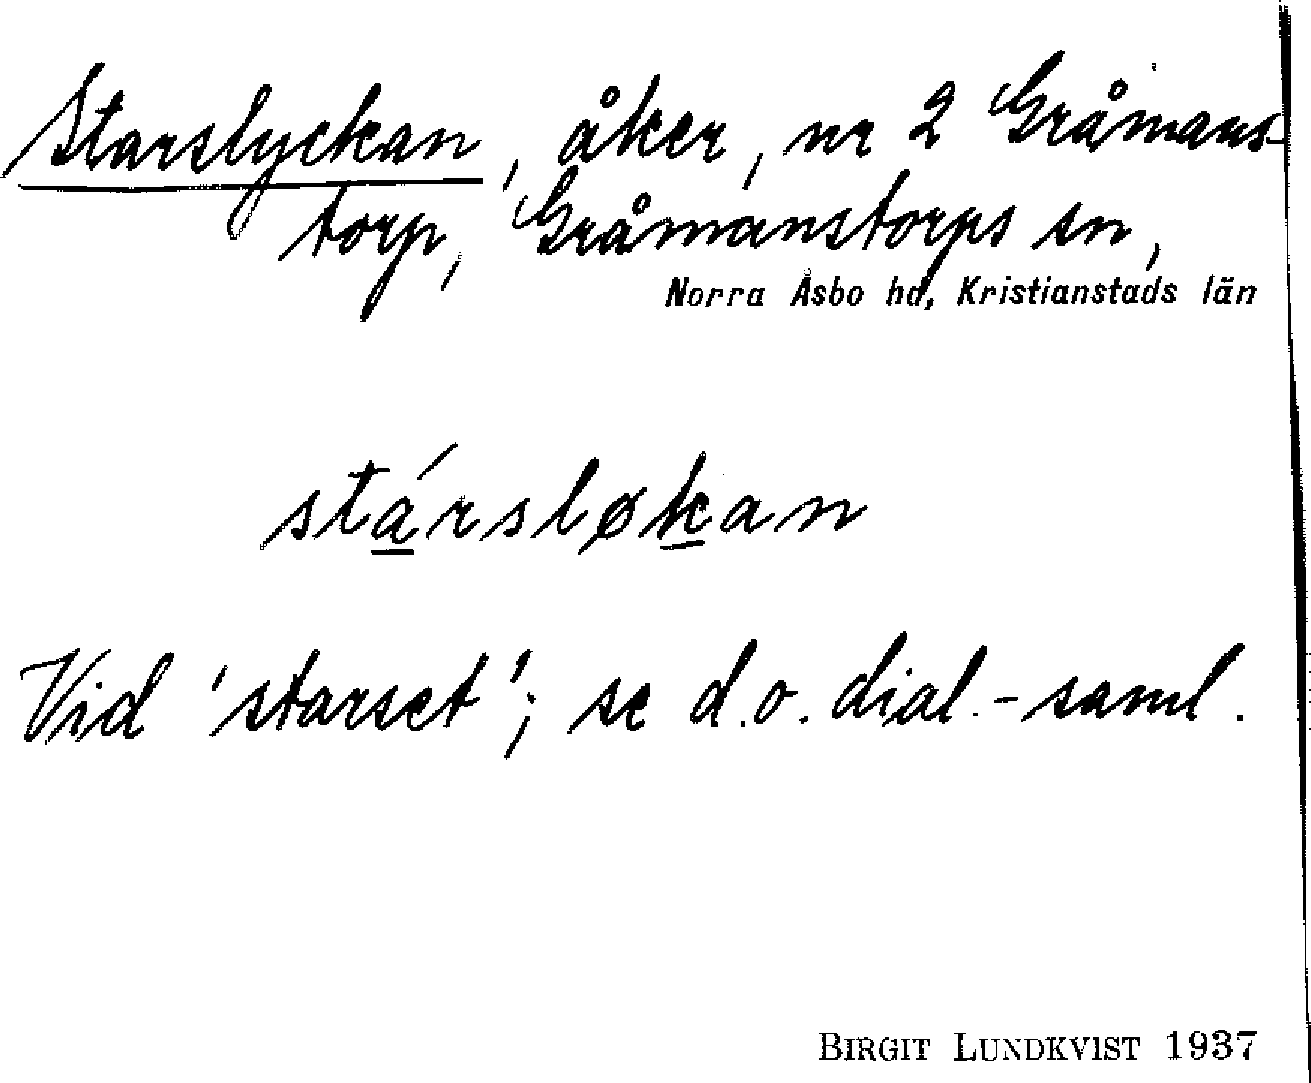 Starslyckan, åker, nr 2 Gråmans-
torp, Gråmanstorps sn,
Norra Åsbo hd, Kristianstads län
stá̱rsløḵan
Vid 'starset'; se d.o. dial.-saml.
BIRGIT LUNDKVIST 1937